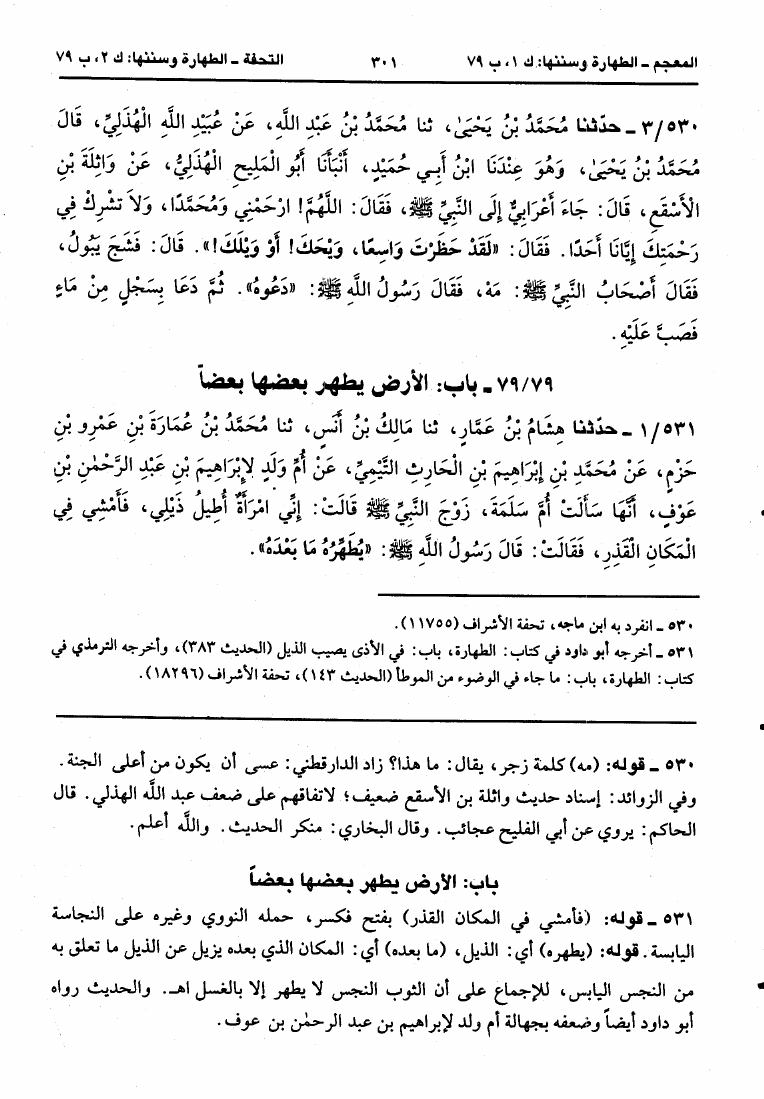 المعجم ـ الطهارة وسننها: ك ١، ب ٧٩
٣٠١
التحفة ـ الطهارة وسننها: ك ٢، ب ٧٩
٣/٥٣٠ ـ حدّثنا مُحَمَّدُ بْنُ يَحْيَىٰ، ثنا مُحَمَّدُ بْنُ عَبْدِ اللَّهِ، عَنْ عُبَيْدِ اللَّهِ الْهُذَلِيِّ، قَالَ
مُحَمَّدُ بْنُ يَحْيَىٰ، وَهُوَ عِنْدَنَا ابْنُ أَبِي حُمَيْدٍ، أَنْبَأَنَا أَبُو الْمَلِيحِ الْهُذَلِيُّ، عَنْ وَاثِلَةَ بْنِ
الْأَسْقَعِ، قَالَ: جَاءَ أَعْرَابِيٌّ إِلَى النَّبِيِّ ﷺ، فَقَالَ: اللَّهُمَّ! ارْحَمْنِي وَمُحَمَّدًا، وَلاَ تُشْرِكْ فِي
رَحْمَتِكَ إِيَّانَا أَحَدًا. فَقَالَ: «لَقَدْ حَظَرْتَ وَاسِعًا، وَيْحَكَ! أَوْ وَيْلَكَ!». قَالَ: فَشَجَ يَبُولُ،
فَقَالَ أَصْحَابُ النَّبِيِّ ﷺ: مَهْ، فَقَالَ رَسُولُ اللَّهِ ﷺ: «دَعُوهُ». ثُمَّ دَعَا بِسَجْلٍ مِنْ مَاءٍ
فَصَبَّ عَلَيْهِ.
٧٩/٧٩ ـ باب: الأرض يطهر بعضها بعضاً
١/٥٣١ ـ حدّثنا هِشَامُ بْنُ عَمَّارٍ، ثنا مَالِكُ بْنُ أَنَسٍ، ثنا مُحَمَّدُ بْنُ عُمَارَةَ بْنِ عَمْرِو بْنِ
حَزْمٍ، عَنْ مُحَمَّدِ بْنِ إِبْرَاهِيمَ بْنِ الْحَارِثِ التَّيْمِيِّ، عَنْ أُمِّ وَلَدٍ لِإِبْرَاهِيمَ بْنِ عَبْدِ الرَّحْمٰنِ بْنِ
عَوْفٍ، أَنَّهَا سَأَلَتْ أُمَّ سَلَمَةَ، زَوْجَ النَّبِيِّ ﷺ قَالَتْ: إِنِّي امْرَأَةٌ أُطِيلُ ذَيْلِي، فَأَمْشِي فِي
الْمَكَانِ الْقَذِرِ، فَقَالَتْ: قَالَ رَسُولُ اللَّهِ ﷺ: «يُطَهِّرُهُ مَا بَعْدَهُ».
٥٣٠ ـ انفرد به ابن ماجه، تحفة الأشراف (١١٧٥٥).
٥٣١ ـ أخرجه أبو داود في كتاب: الطهارة، باب: في الأذى يصيب الذيل (الحديث ٣٨٣)، وأخرجه الترمذي في
كتاب: الطهارة، باب: ما جاء في الوضوء من الموطأ (الحديث ١٤٣)، تحفة الأشراف (١٨٢٩٦).
٥٣٠ ـ قوله: (مه) كلمة زجر، يقال: ما هذا؟ زاد الدارقطني: عسى أن يكون من أعلى الجنة.
وفي الزوائد: إسناد حديث واثلة بن الأسقع ضعيف؛ لاتفاقهم على ضعف عبد اللَّه الهذلي. قال
الحاكم: يروي عن أبي الفليح عجائب. وقال البخاري: منكر الحديث. واللَّه أعلم.
باب: الأرض يطهر بعضها بعضاً
٥٣١ ـ قوله: (فأمشي في المكان القذر) بفتح فكسر، حمله النووي وغيره على النجاسة
اليابسة. قوله: (يطهره) أي: الذيل، (ما بعده) أي: المكان الذي بعده يزيل عن الذيل ما تعلق به
من النجس اليابس، للإجماع على أن الثوب النجس لا يطهر إلا بالغسل اهـ. والحديث رواه
أبو داود أيضاً وضعفه بجهالة أم ولد لإبراهيم بن عبد الرحمٰن بن عوف.